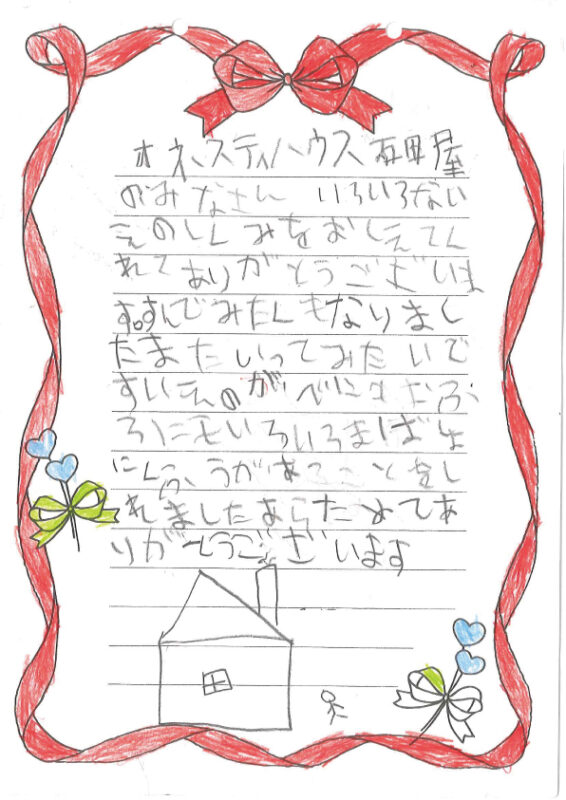 オネスティハウス石田屋
のみなさん いろいろない
えのしくみをおしえてく
れてありがとうございま
す。すんでみたくもなりまし
たまたいってみたいで
すいえの
ろにもいろいろまばしょ
にくふうがあることをし
れましたあらためてあ
りがとうございます